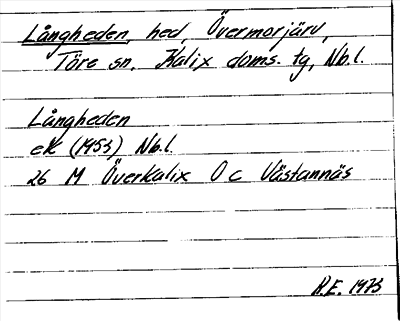 Långheden, hed, Övermorjärv,
Töre sn. Kalix doms. tg, Nb.l.
Långheden
ek (1953) Nb.l.
26 M Överkalix O c Västannäs
R.E. 1973